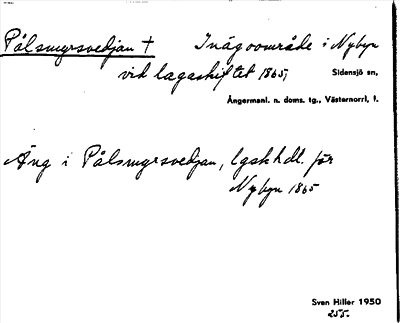 Pålsmyrsvedjan † Inägoområde i Nybyn
vid lagaskiftet 1865;
Sidensjö sn,
Ångermanl. n. doms. tg., Västernorrl, l.
Äng i Pålsmyrsvedjan, lgskhdl. för
Nybyn 1865
Sven Hiller 1950
255.